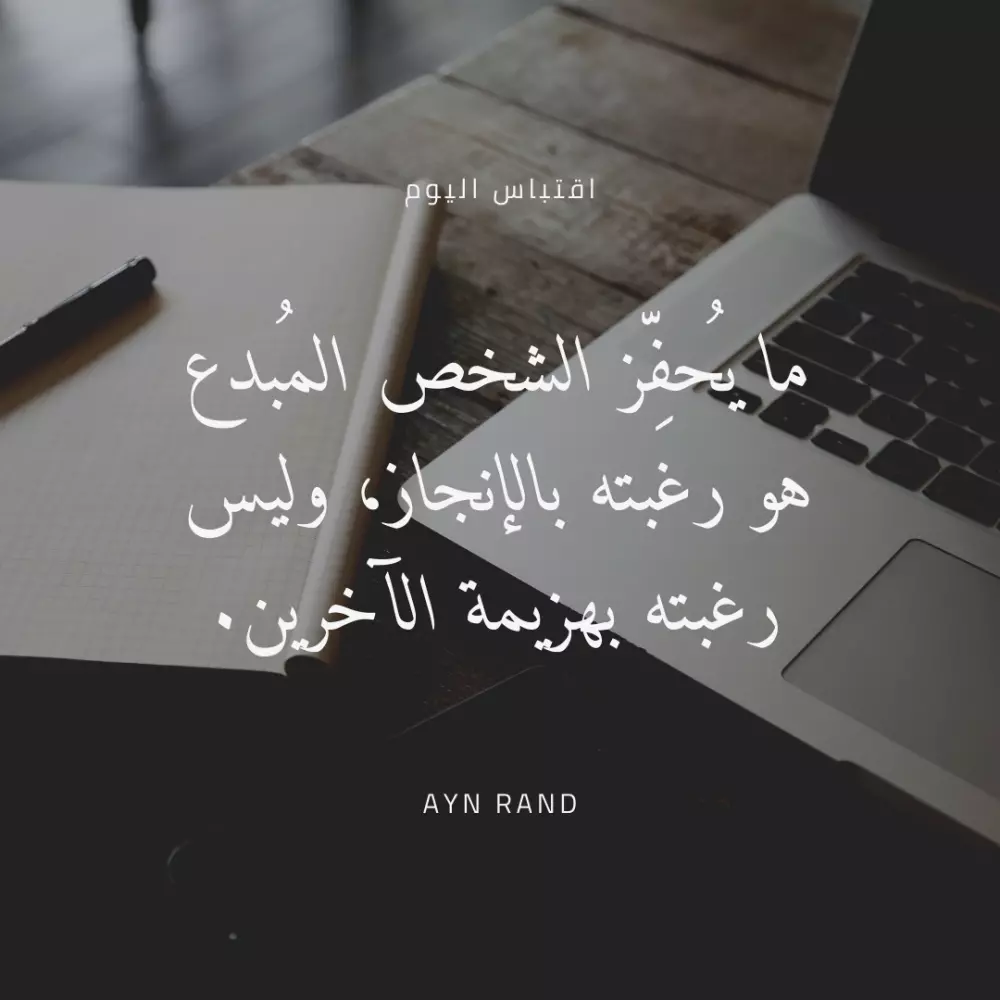 اقتباس اليوم
ما يُحفِّز الشخص المُبدع
هو رغبته بالإنجاز، وليس
رغبته بهزيمة الآخرين.
AYN RAND